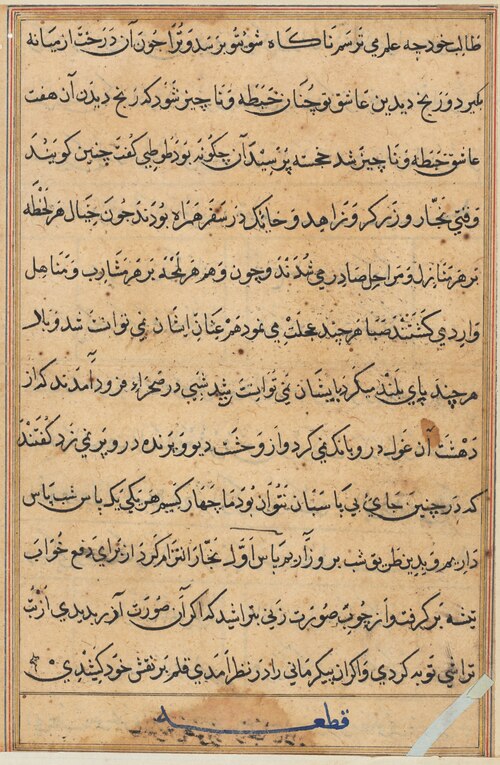 طالب خود چه علم می ترسم ناکاه شوی تو برسد و ترا چون آن درخت از میانه
بکیرد و رنج دیدن عاشق تو چنان خبطه و ناچیز شود که رنج دیدن آن هفت
عاشق خبطه و ناچیز شد خجسته پرسید آن چکونه بود طوطی کفت چنین کویند
وقتی نجار و زرکر و زاهد و حایک در سفر همراه بودند چون خیال هر لحظه
بر هر منازل و مراحل صادر می شدند و چون وهم هر لمحه بر هر مشارب و مناهل
وارد می کشتند صبا هر چند عجلت می نمود هم عنان ایشان نمی توانست شد و بلا
هر چند پای بلند میکرد بایشان نمی توانست رسید شبی در صحراء فرود آمدند که از
دهشت آن غول درو بانک نمی کرد و از وحشت دیو و پرنده درو پر نمی زد کفتند
که در چنین جای بی پاسبان نتوان بود ما چهار کسیم هر یکی یک پاس شب پاس
داریم و بدین طریق شب بروز آریم پاس اول نجار التزام کرد از برای دفع خواب
تیشه بر کرفت و از چوب صورت زنی بتراشید که اکر آن صورت آذر بدیدی از بت
تراشی توبه کردی و اکر آن پیکر مانی را در نظر آمدی قلم بر نقش خود کشیدی
قطعه